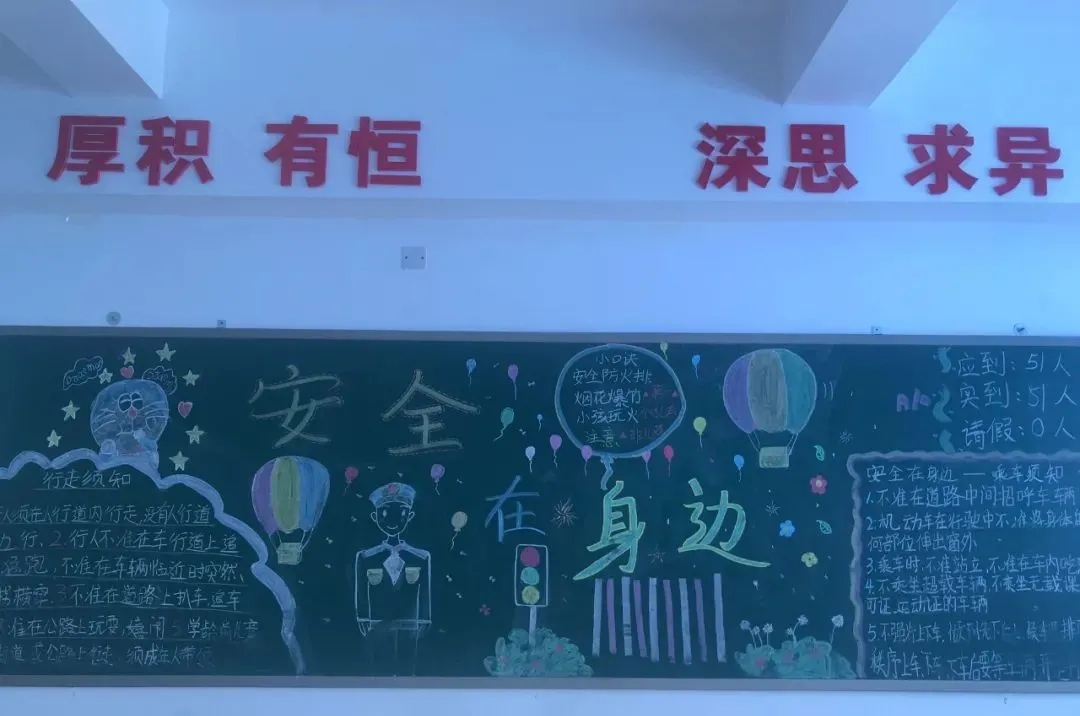 厚积 有恒 深思 求异
安全在身边
小口诀
安全防火排
烟花爆竹
小孩玩火
注意
应到:51人
实到:51人
请假:0人
行走须知
人须在人行道内行走,没有人行道
行、2.行人不准在车行道上追
跑,不准在车辆临近时突然
横穿.3.不准在道路上扒车,追车
准在公路上玩耍,嬉闹.5.学龄前儿童
须成年人带领
安全在身边——乘车须知
1.不准在道路中间招呼车辆
2.机动车在行驶中不准将身体的
何部位伸出窗外
3.乘车时,不准站立,不准在车内吵
4.不乘坐超载车辆,不乘坐无载课
可证,运动证的车辆
5.不强行上下车,做到先下
秩序上车下